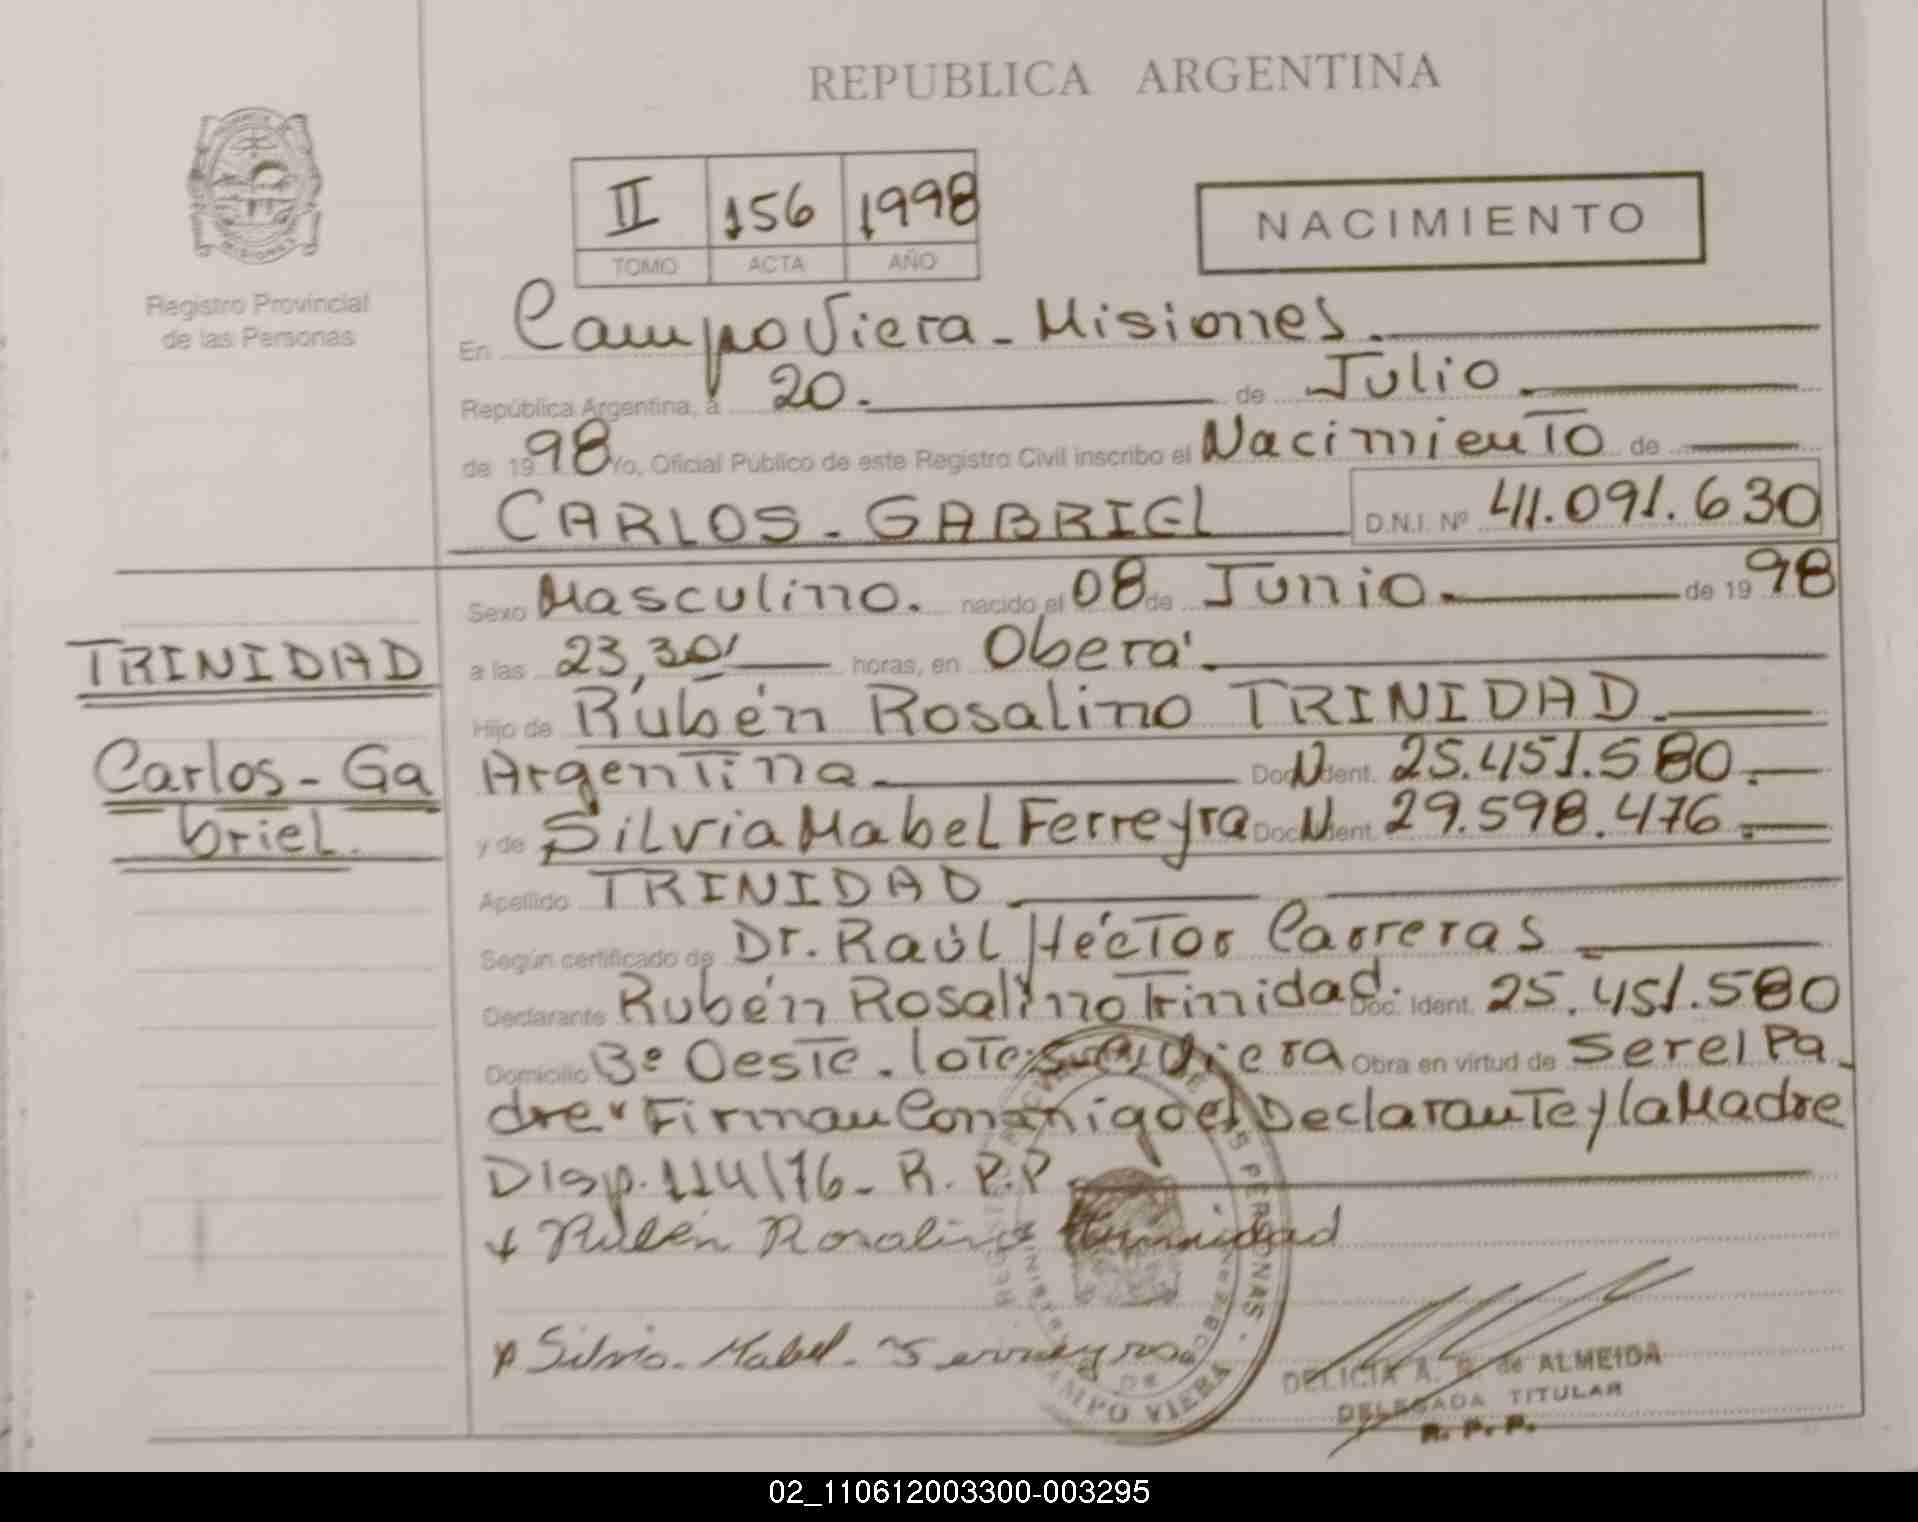 REPUBLICA ARGENTINA
II 156 1998
TOMO ACTA AÑO
NACIMIENTO
Registro Provincial
de las Personas
En Campo Viera - Misiones.
República Argentina, a 20. de Julio.
de 1998 Yo, Oficial Público de este Registro Civil inscribo el Nacimiento de
CARLOS - GABRIEL D.N.I. Nº 41.091.630
Sexo Masculino. nacido el 08 de Junio. de 1998
a las 23,30' horas, en Oberá.
Hijo de Rubén Rosalino TRINIDAD.
Argentina Doc. Ident. N 25.451.580.
y de Silvia Mabel Ferreyra Doc. Ident. N 29.598.476.
Apellido TRINIDAD
Según certificado de Dr. Raúl Héctor Carreras
Declarante Rubén Rosalino Trinidad. Doc. Ident. 25.451.580
Domicilio 3º Oeste. lote Viera Obra en virtud de ser el Pa-
dre Firman Conmigo el Declarante y la Madre
Disp. 114/76 - R.P.P.
TRINIDAD
Carlos - Ga
briel.
Rubén Rosalino Trinidad
Silvia Mabel Ferreyra
DE LAS PERSONAS
CAMPO VIERA
DELICIA A. de ALMEIDA
DELEGADA TITULAR
R. P. P.
02_110612003300-003295